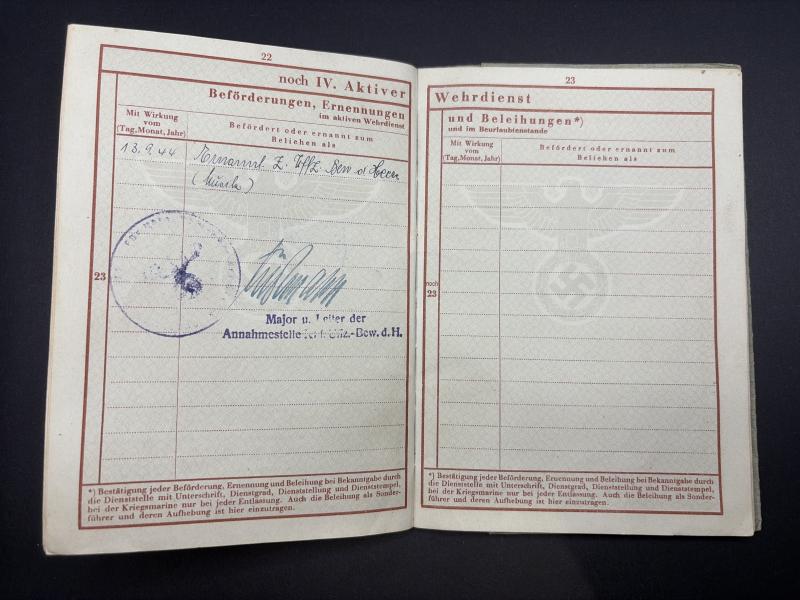 22
noch IV. Aktiver
Beförderungen, Ernennungen
im aktiven Wehrdienst
Mit Wirkung
vom
(Tag, Monat, Jahr)
Befördert oder ernannt zum
Beliehen als
13.9.44 Ernannt z. Uffz. Bew d Heeres
23
Major u. Leiter der
Annahmestelle Bew. d. H.
*) Bestätigung jeder Beförderung, Ernennung und Beleihung bei Bekanntgabe durch
die Dienststelle mit Unterschrift, Dienstgrad, Dienststellung und Dienststempel,
bei der Kriegsmarine nur bei jeder Entlassung. Auch die Beleihung als Sonder-
führer und deren Aufhebung ist hier einzutragen.
23
Wehrdienst
und Beleihungen*)
und im Beurlaubtenstande
Mit Wirkung
vom
(Tag, Monat, Jahr)
Befördert oder ernannt zum
Beliehen als
noch
23
*) Bestätigung jeder Beförderung, Ernennung und Beleihung bei Bekanntgabe durch
die Dienststelle mit Unterschrift, Dienstgrad, Dienststellung und Dienststempel,
bei der Kriegsmarine nur bei jeder Entlassung. Auch die Beleihung als Sonder-
führer und deren Aufhebung ist hier einzutragen.